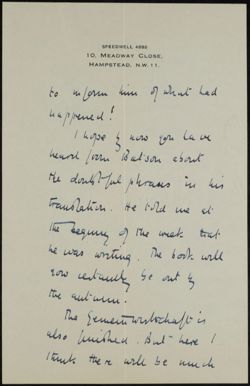 SPEEDWELL 4882
10, MEADWAY CLOSE,
HAMPSTEAD, N.W. 11.
to inform him of what had
happened!
I hope by now you have
heard from Batson about
the doubtful phrases in his
translation. He told me at
the beginning of the week that
he was writing. The book will
now certainly be out by
the autumn.
The Gemeinwirtschaft is
also finished. But here I
think there will be much